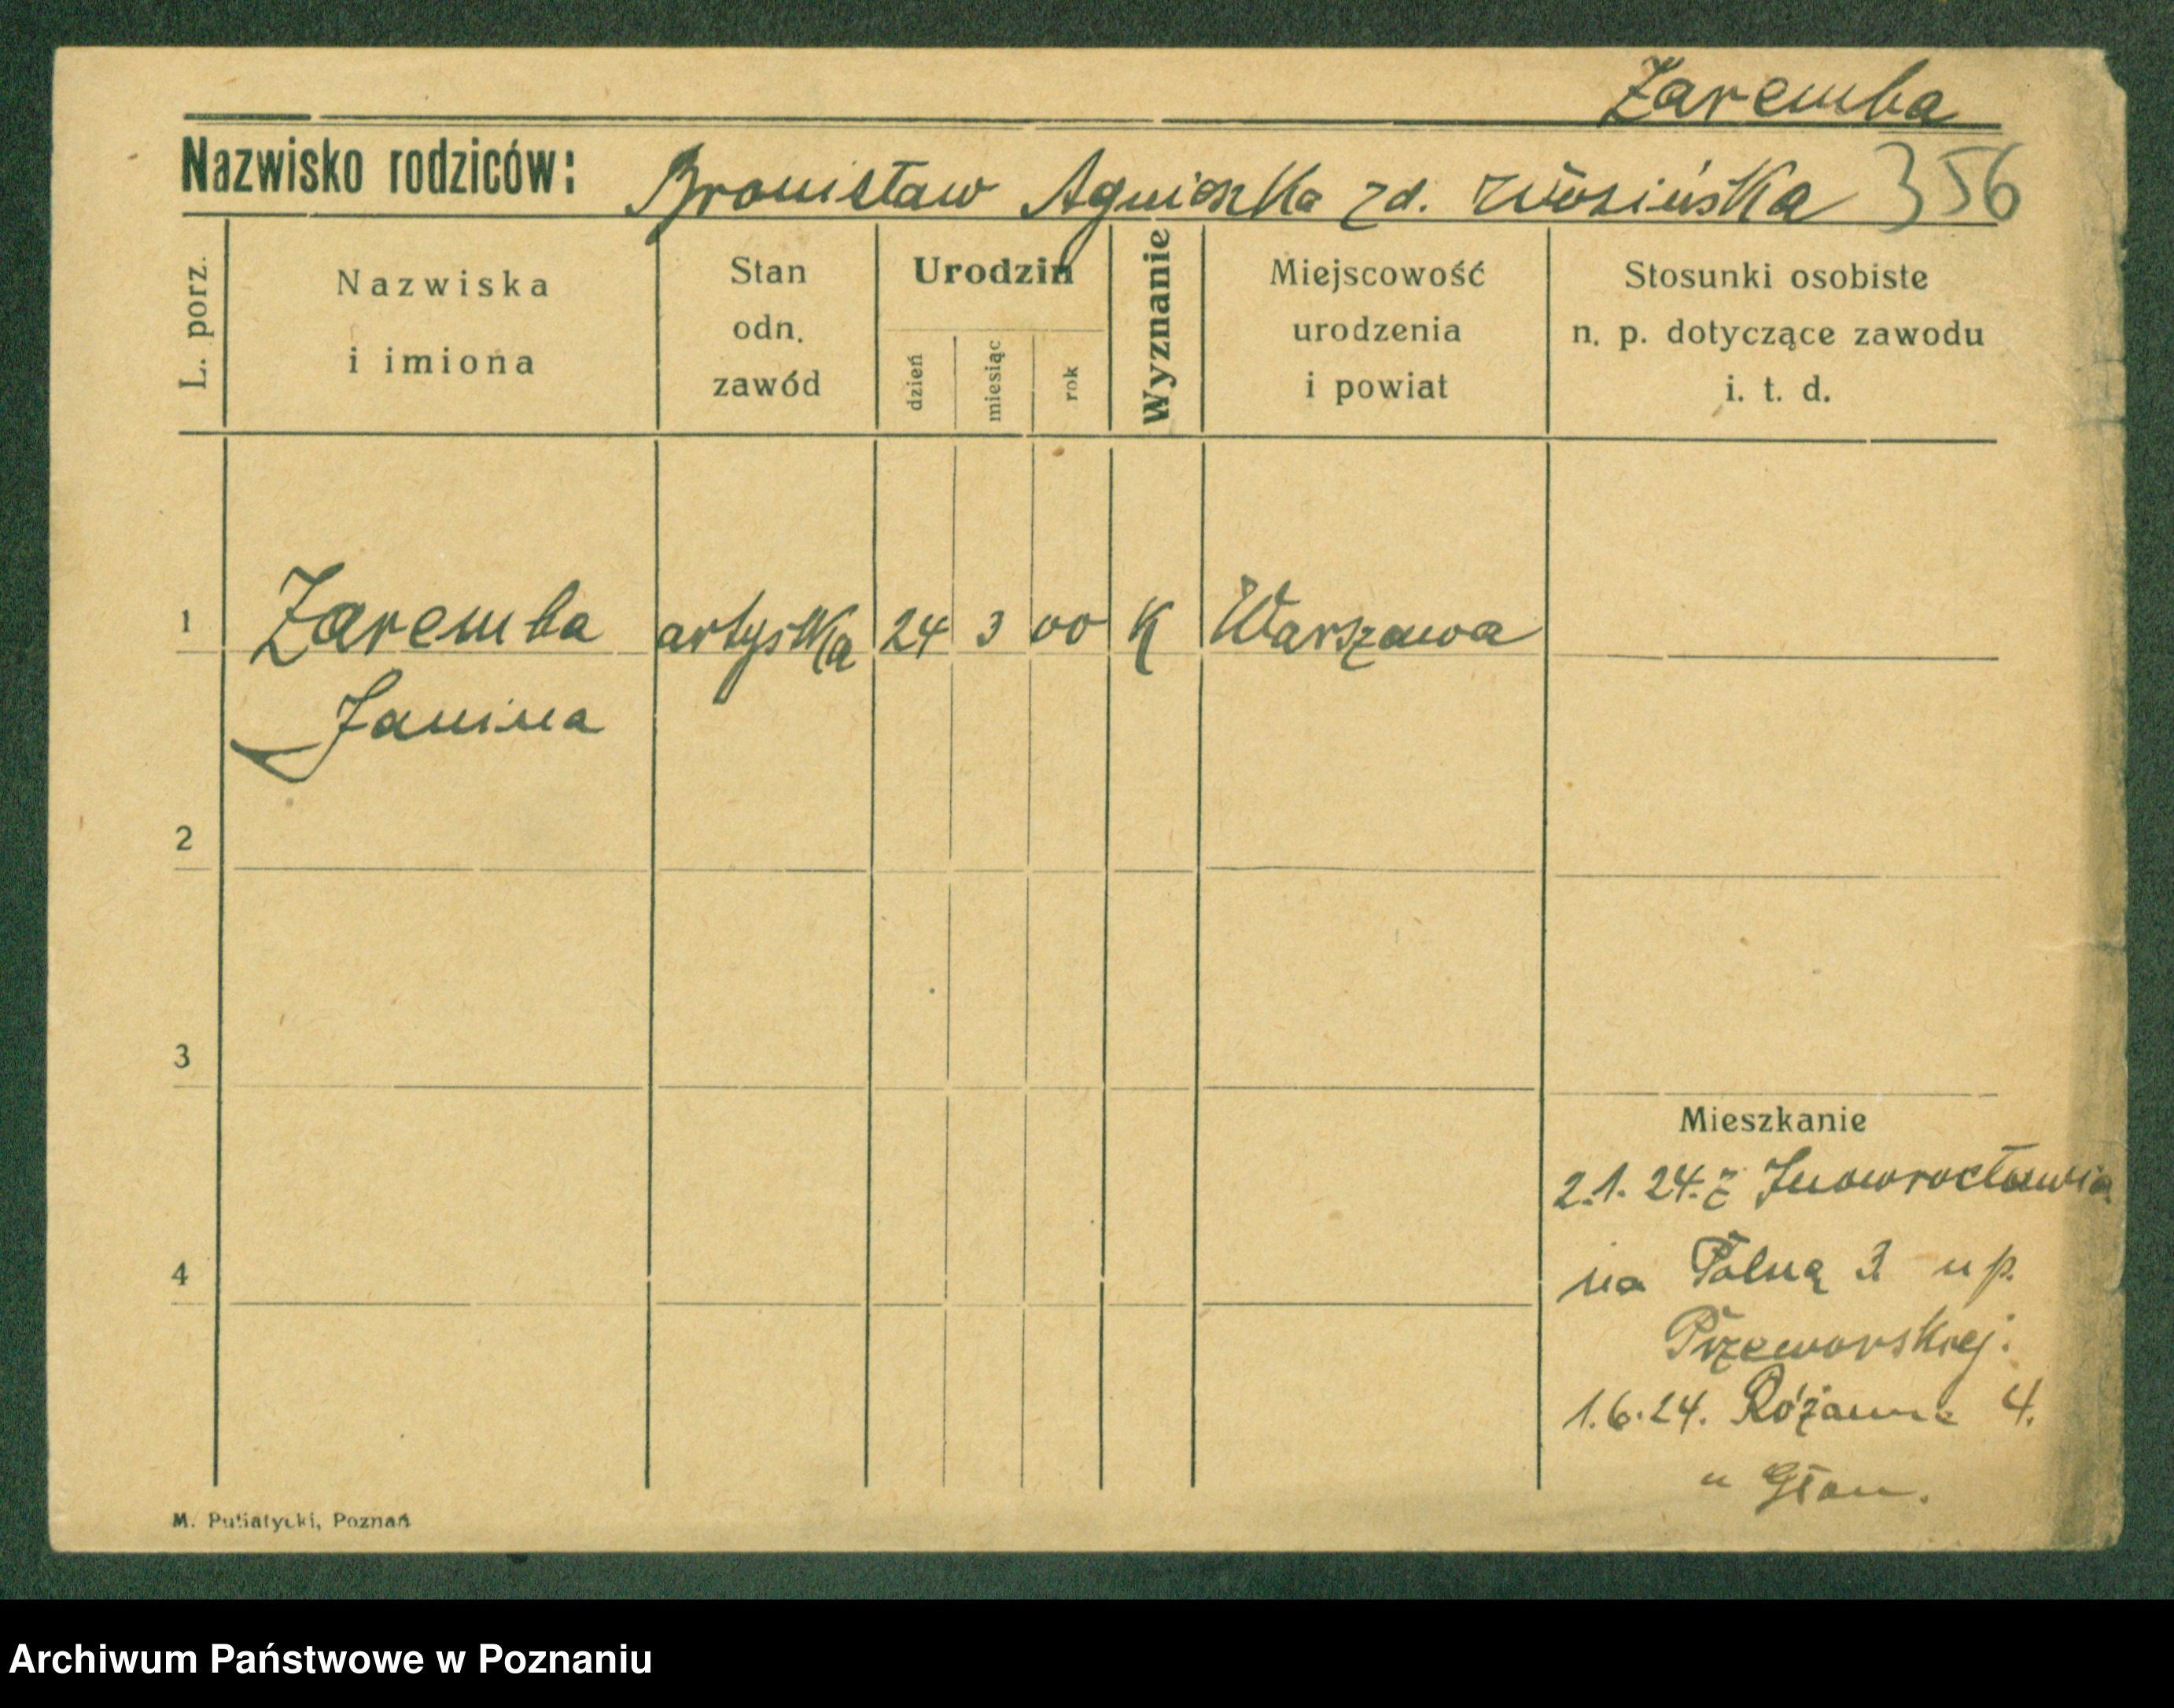 Zaremba
Nazwisko rodziców: Bronisław Agnieszka zd. 356
L. porz.
Nazwiska i imiona
Stan odn. zawód
Urodzin
dzień miesiąc rok
Wyznanie
Miejscowość urodzenia i powiat
Stosunki osobiste n. p. dotyczące zawodu i. t. d.
1 Zaremba artystka 24 3 00 K Warszawa
Janina
2
3
Mieszkanie
2.1.24. z Inowrocławia
4
na Polną 3 u p.
Przeworskiej.
1.6.24. Różanna 4.
u
M. Putiatycki, Poznań
Archiwum Państwowe w Poznaniu